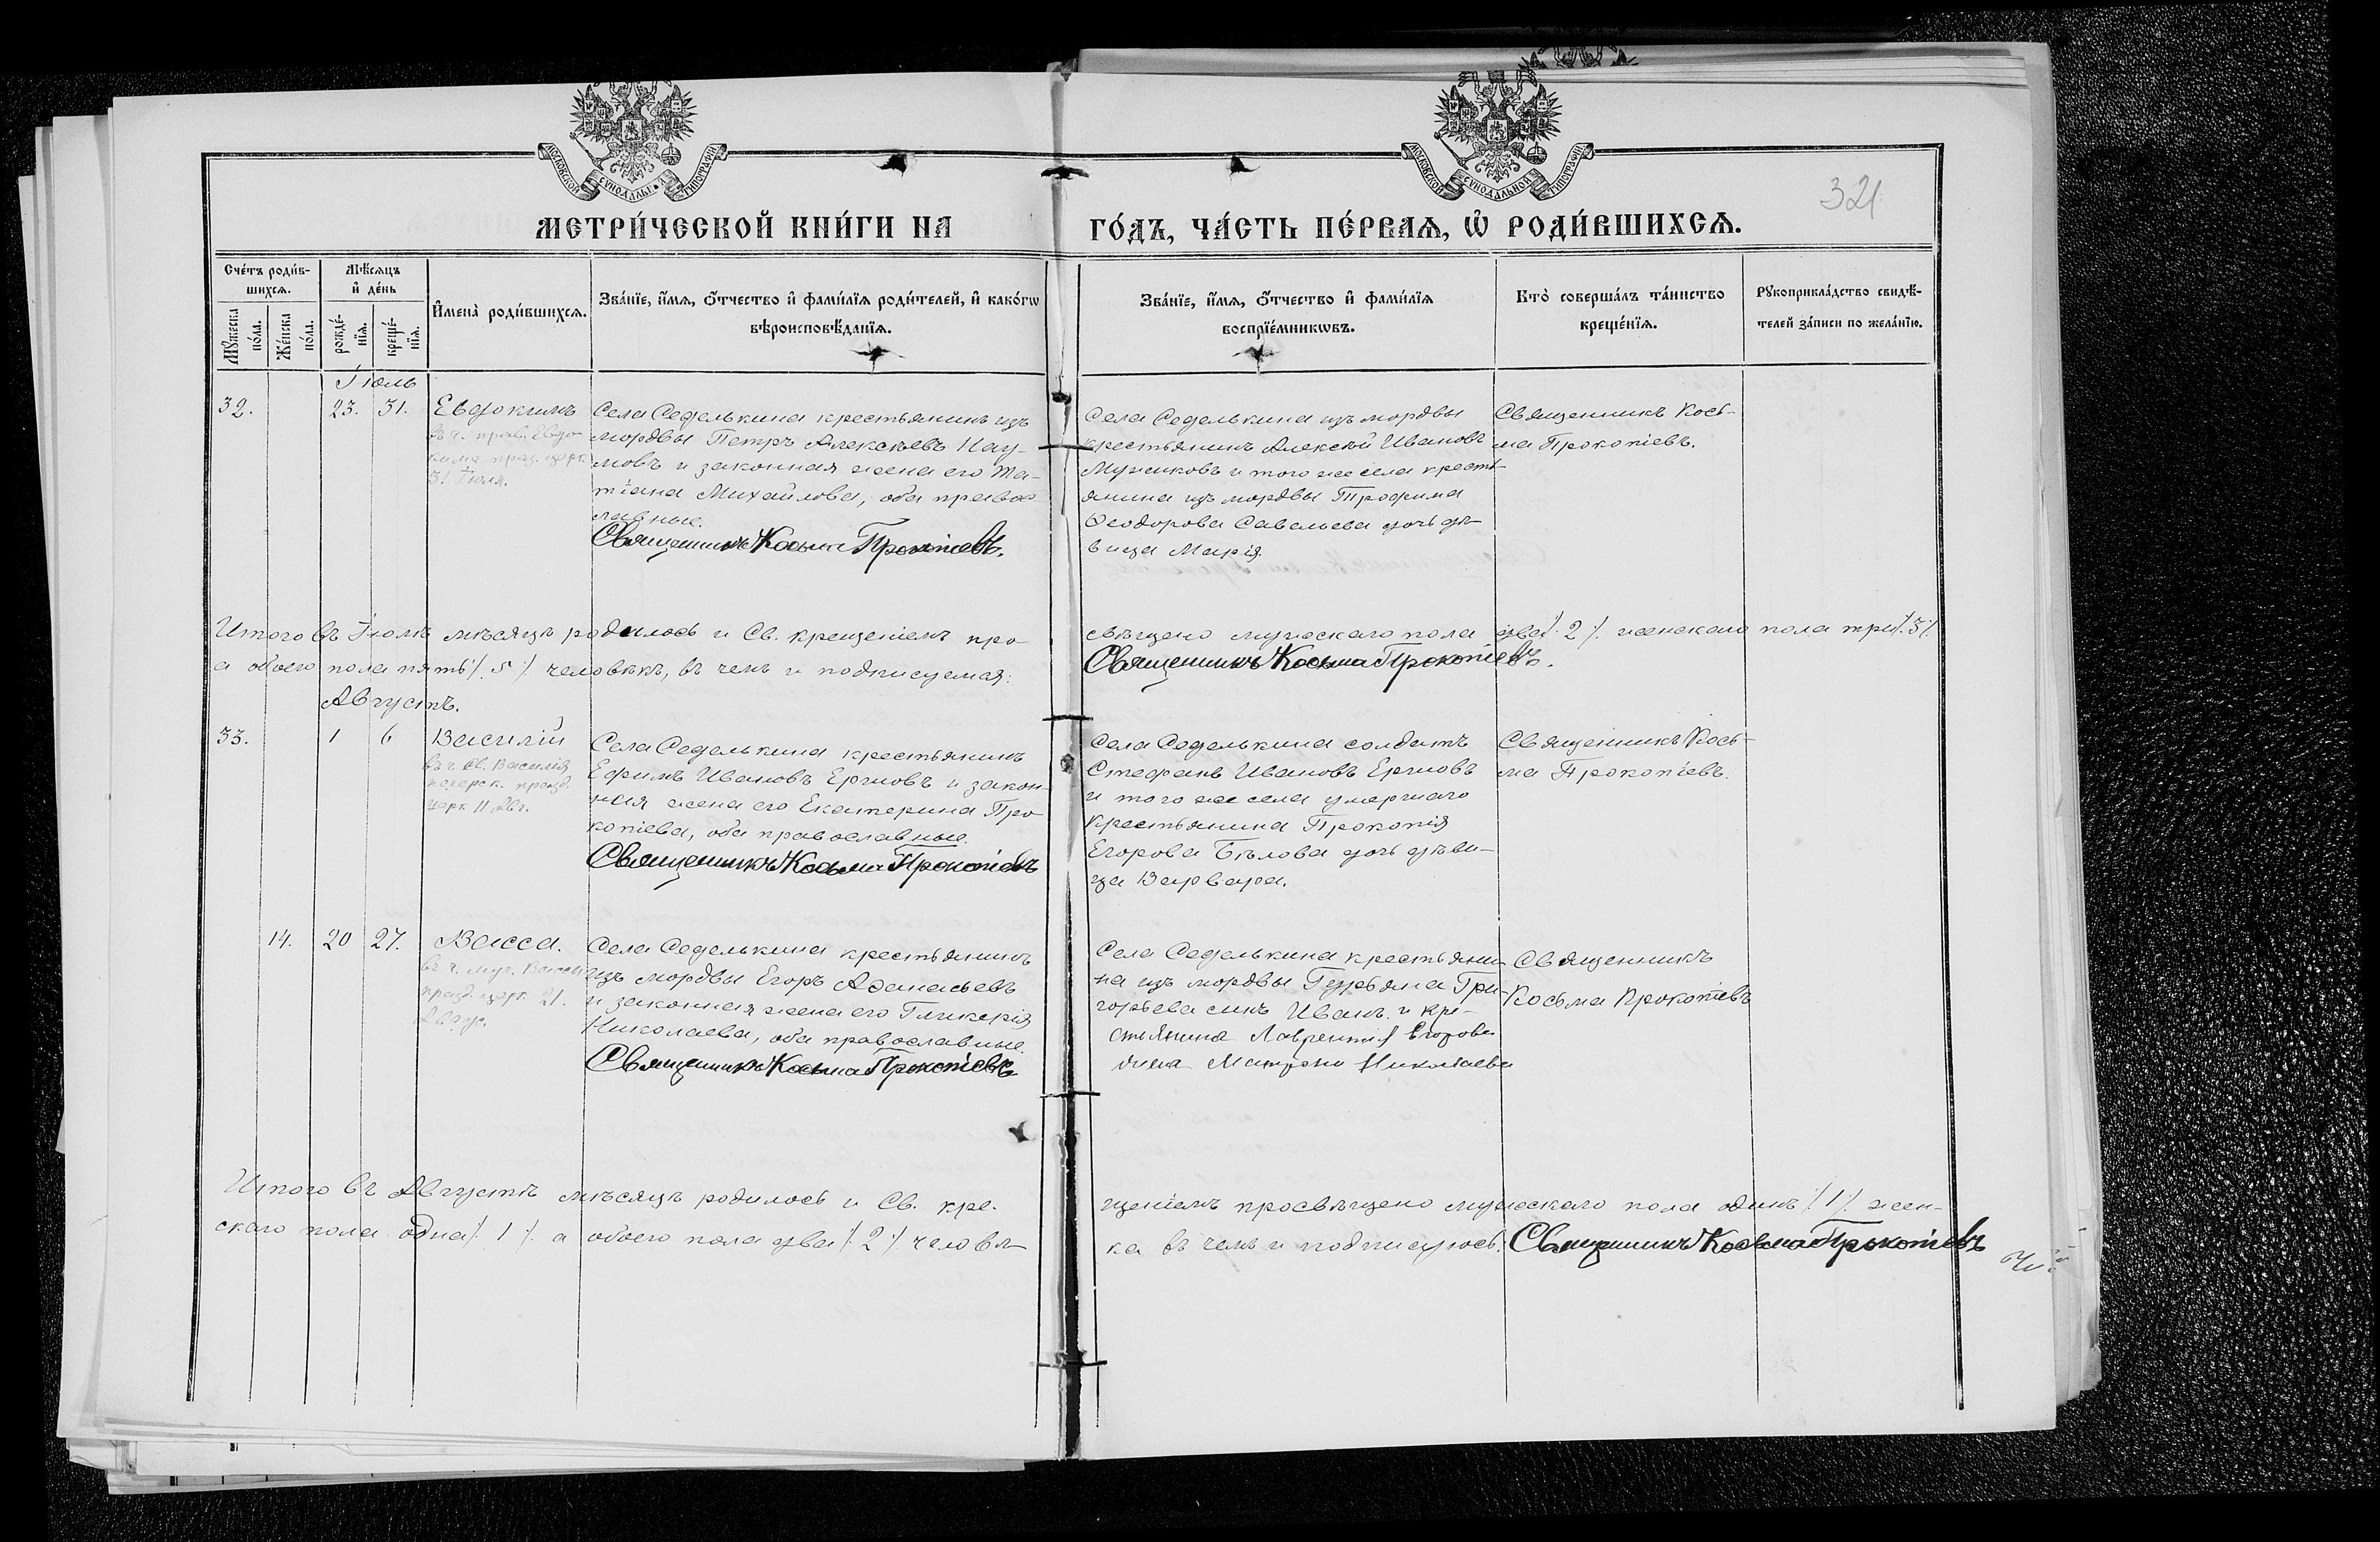 МОСКОВСКОЙ СУНОДАЛЬНОЙ ТИПОГРАФІИ
МОСКОВСКОЙ СУНОДАЛЬНОЙ ТИПОГРАФІИ
321
МЕТРИ́ЧЕСКОЙ КНИ́ГИ НА ГО́ДЪ, ЧА́СТЬ ПЕ́РВАѦ, Ѡ҆ РОДИ́ВШИХСѦ.
Сче́тъ роди́в-
шихсѧ.
Мꙋ́жеска по́ла.
Же́нска по́ла.
Мѣ́сѧцъ
и҆ де́нь
рожде́-
нїѧ.
креще́-
нїѧ.
И҆мена̀ роди́вшихсѧ.
Зва́нїе, и҆́мѧ, ѻ҆́тчество и҆ фами́лїѧ роди́телей, и҆ како́гѡ
вѣроисповѣ́данїѧ.
Зва́нїе, и҆́мѧ, ѻ҆́тчество и҆ фами́лїѧ
воспрїе́мникѡвъ.
Кто̀ соверша́лъ та́инство
креще́нїѧ.
Рꙋкоприкла́дство свидѣ́-
телей за́писи по жела́нїю.
Іюль
32.
23.
31.
Евдокимъ
въ ч. прав. Евдо-
кима праз. церк.
31 Іюля.
Села Седелькина крестьянинъ изъ
мордвы Петръ Алексѣевъ Нау-
мовъ и законная жена его Та-
тіана Михайлова, оба правос
лавные.
Священникъ Косьма Прокопіевъ.
Села Седелькина изъ мордвы
крестьянинъ Алексѣй Ивановъ
и того же села кресть-
янина изъ мордвы Трофима
Ѳеодорова Савельева дочь дѣ-
вица Марія.
Священникъ Кось-
ма Прокопіевъ.
Итого въ Іюлѣ мѣсяцѣ родилось и Св. крещеніемъ про- свѣщено мужескаго пола два ∕. 2 ∕. женскаго пола три ∕. 3 ∕.
а обоего пола пять ∕. 5 ∕. человѣкъ, въ чемъ и подписуемся: Священникъ Косьма Прокопіевъ.
Августъ.
33.
1
6
Василій
въ ч. Св. Василія
печерск. празд.
церк. 11 Авг.
Села Седелькина крестьянинъ
Ефимъ Ивановъ Ершовъ и закон-
ная жена его Екатерина Про
копіева, оба православные.
Священникъ Косьма Прокопіевъ
Села Седелькина солдатъ
Стефанъ Ивановъ Ершовъ
и того же села умершаго
крестьянина Прокопія
Егорова Бѣлова дочь дѣви-
ца Варвара.
Священникъ Кось-
ма Прокопіевъ.
14.
20
27.
Васса.
въ ч. муч. Вассы
празд. церк. 21.
Авгус.
Села Седелькина крестьянинъ
изъ мордвы Егоръ Аѳанасьевъ
и законная жена его Гликерія
Николаева, оба православные.
Священникъ Косьма Прокопіевъ
Села Седелькина крестьяни-
на изъ мордвы Гурьяна Гри-
горьева сынъ Иванъ и кре-
стьянина Лаврентія Егорова
жена Матрона Николаева
Священникъ
Косьма Прокопіевъ
Итого въ Августѣ мѣсяцѣ родилось и Св. кре- щеніемъ просвѣщено мужескаго пола одинъ ∕. 1 ∕. жен-
скаго пола одна ∕. 1 ∕. а обоего пола два ∕. 2 ∕. человѣ- ка въ чемъ и подписуюсь. Священникъ Косьма Прокопіевъ